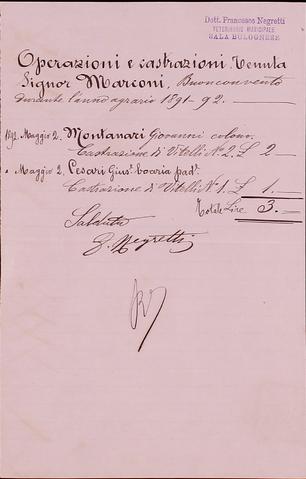 Dott. Francesco Negretti
VETERINARIO MUNICIPALE
SALA BOLOGNESE
Operazioni e castrazioni Tenuta
Signor Marconi, Buonconvento
durante l'anno agrario 1891-92.
1892. Maggio 2. Montanari Giovanni colono.
Castrazione di Vitelli N° 2. £ 2
" Maggio 2. Cesari Gius. boaria pad.
Castrazione di Vitelli N° 1. £ 1.
Totale Lire 3.
Saldato
F. Negretti